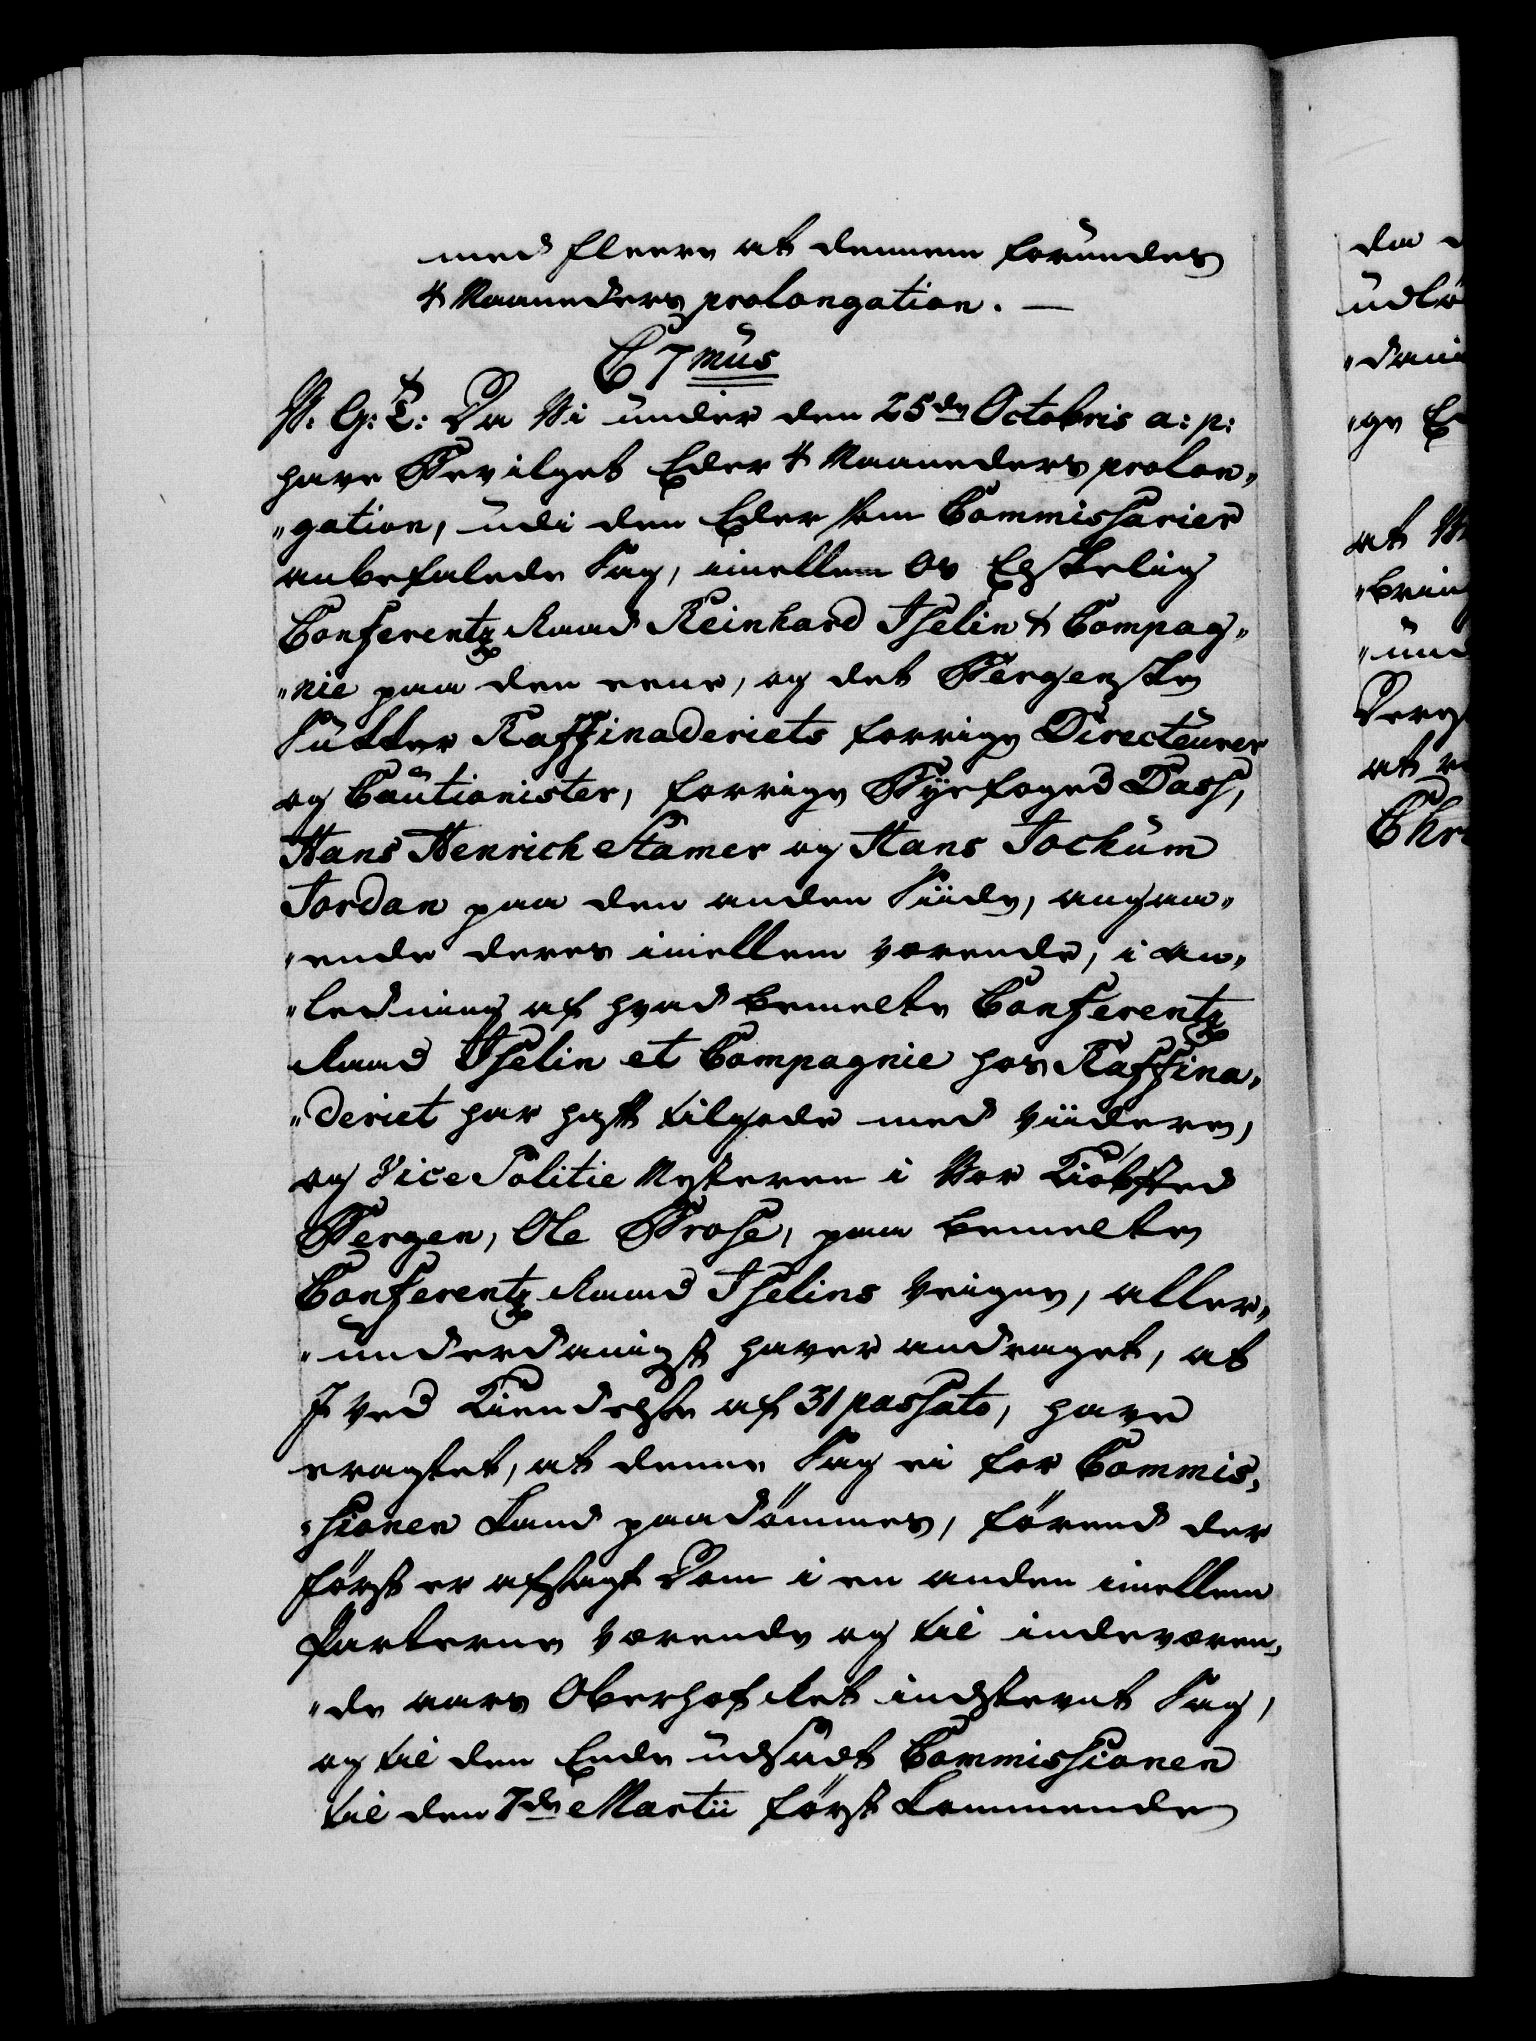 med fleere at dennem forundes
4 Maaneders prolongation. —
C 7mus
V. G: T: Da Vi under den 25de Octobris a: p:
have Bevilget Eder 4 Maaneders prolon„
„gation, udi den Eder som Commissarier
anbefalede Sag, imellem Os Elskelig
Conferentz Raad Reinhard Iselin & Compag„
„nie paa den eene, og det Bergenske
Sukker Raffinaderiets forrige Directeurer
og Cautionister, forrige Byefoged Dass,
Hans Henrich Stamer og Hans Jochum
Jordan paa den anden Siide, angaa„
„ende deres imellem værende, i an„
„ledning af hvad bemelte Conferentz
Raad Iselin et Compagnie hos Raffina„
„deriet har haft tilgode med viidere,
og Vice Politie Mesteren i Vor Kiöbsted
Bergen, Ole Brose, paa bemelte
Conferentz Raad Iselins veigne, aller„
„underdanigst haver andraget, at
I ved Kiendelse af 31 passato, have
eragtet, at denne Sag ei for Commis„
„sionen kand paadömmes, förend der
först er afsagt Dom i en anden imellem
Parterne værende og til indeværen„
„de aars Oberhof Ret indstevnt Sag,
og til den Ende udsadt Commissionen
til den 7de Martii först kommende